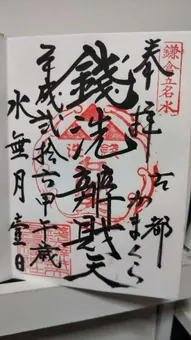 鎌倉五名水
奉拝
古都
かまくら
銭洗辨財天
平成弐拾六甲午歳
水無月壹日